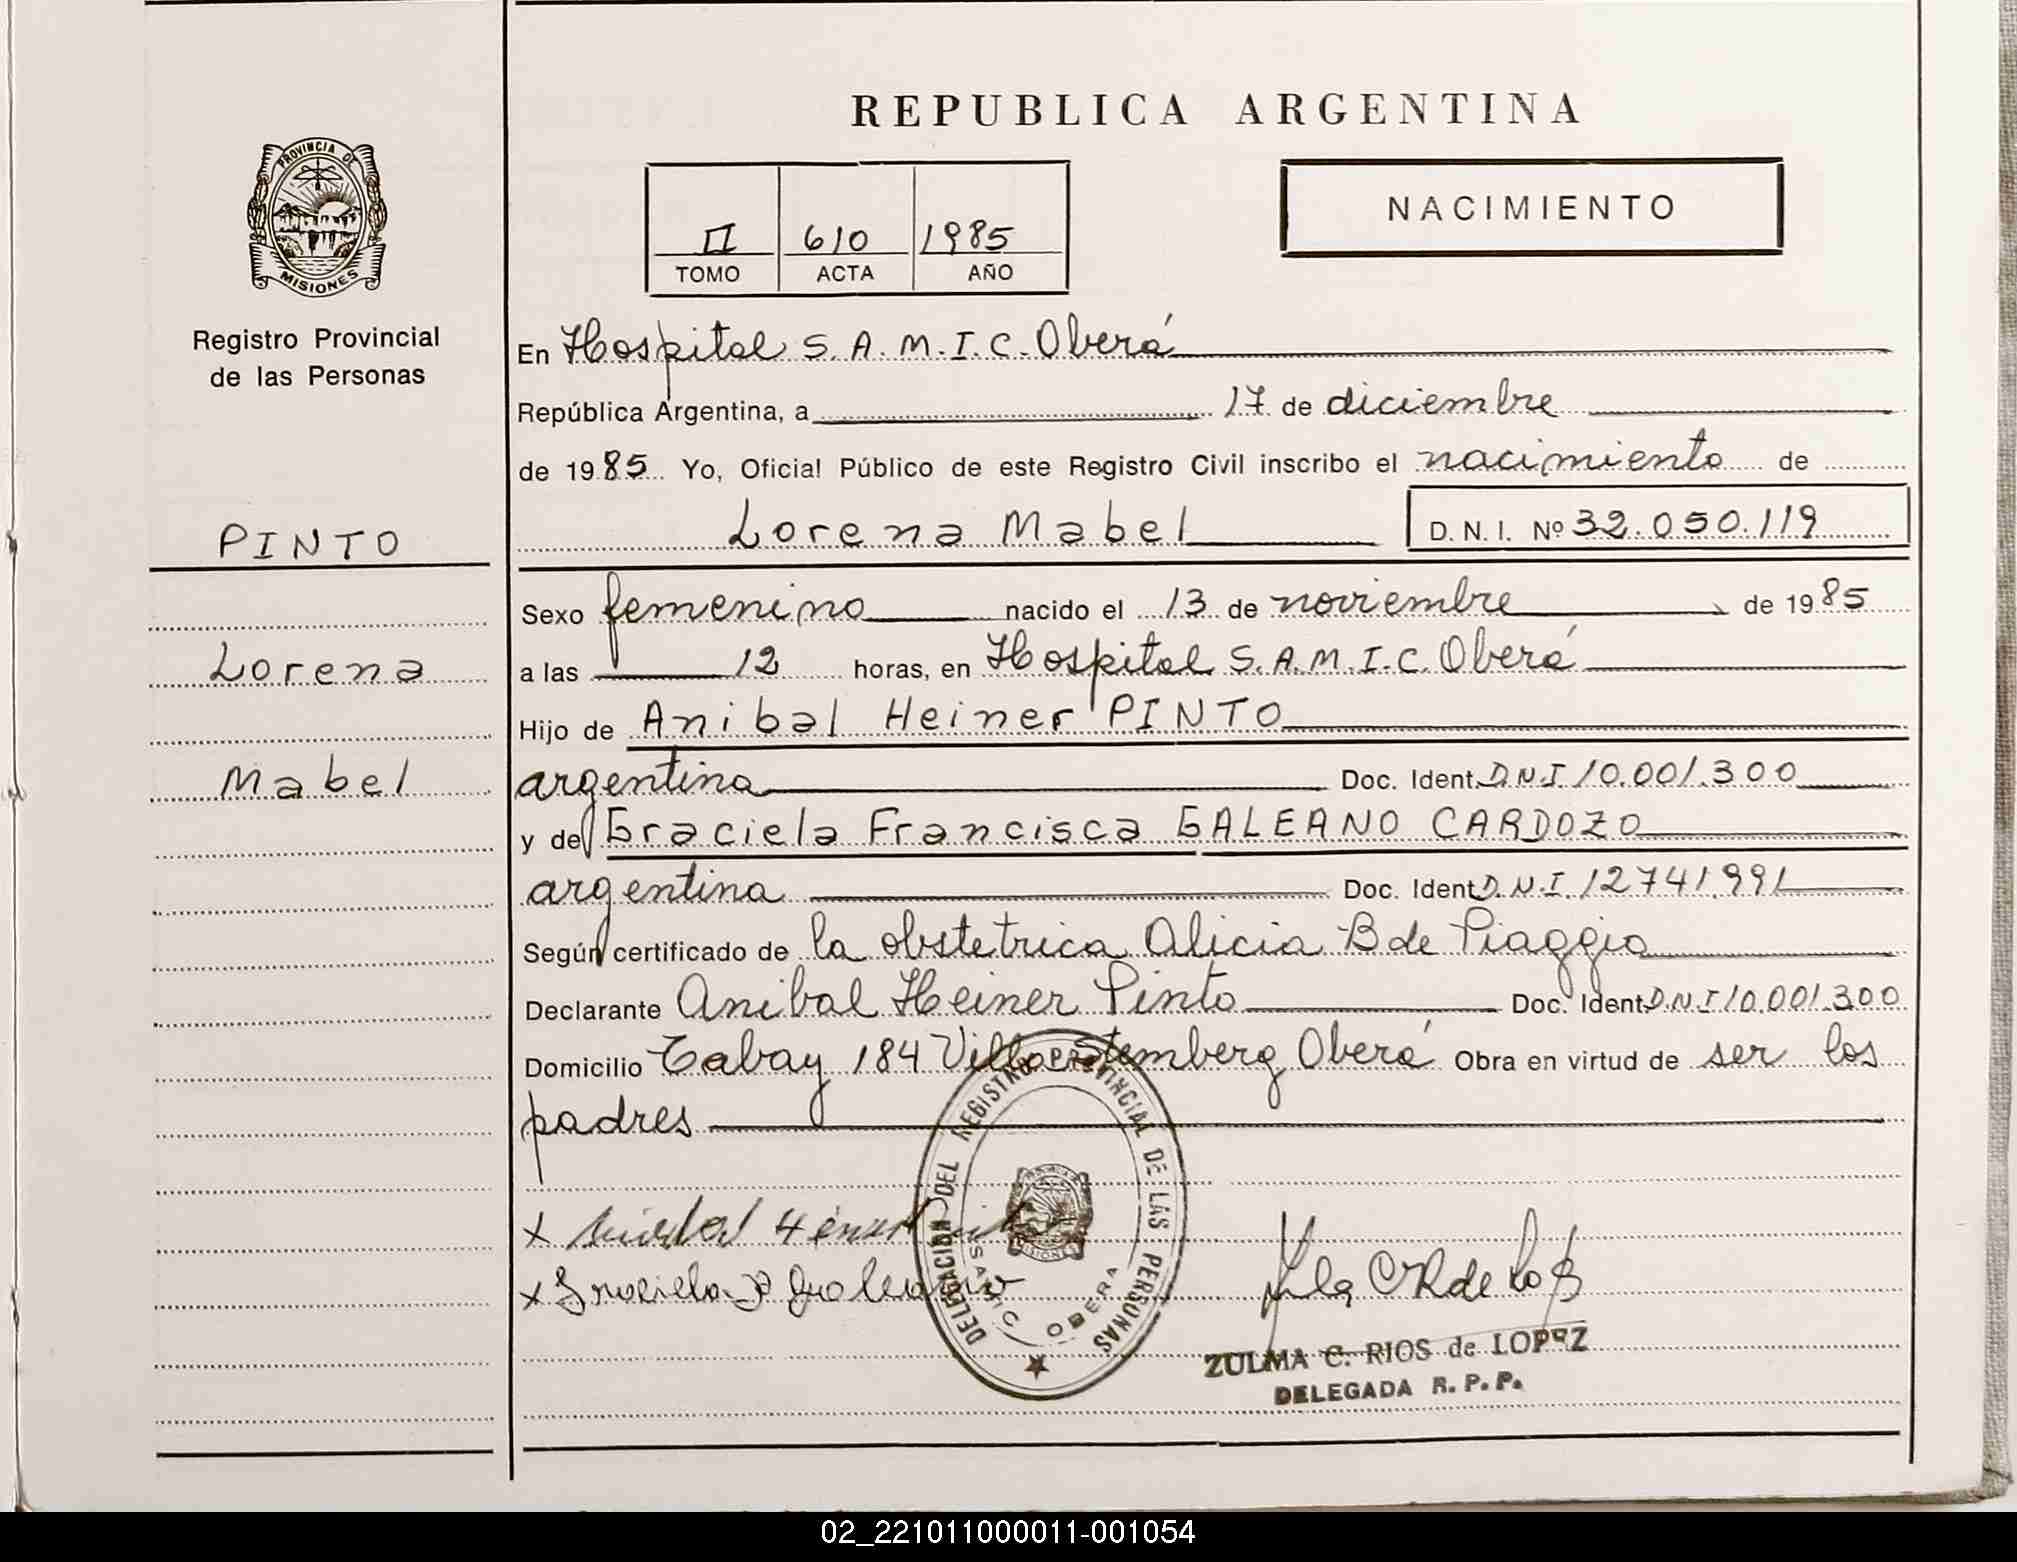 REPUBLICA ARGENTINA
PROVINCIA DE
MISIONES
Registro Provincial
de las Personas
PINTO
Lorena
Mabel
II 610 1985
TOMO ACTA AÑO
NACIMIENTO
En Hospital S.A.M.I.C. Oberá
República Argentina, a 17 de diciembre
de 1985 Yo, Oficial Público de este Registro Civil inscribo el nacimiento de
Lorena Mabel D.N.I. Nº 32.050.119
Sexo femenino nacido el 13 de noviembre de 1985
a las 12 horas, en Hospital S.A.M.I.C. Oberá
Hijo de Anibal Heiner PINTO
argentina Doc. Ident. D.N.I 10.001.300
y de Graciela Francisca GALEANO CARDOZO
argentina Doc. Ident. D.N.I. 12741991
Según certificado de la obstetrica Alicia B de Piaggio
Declarante Anibal Heiner Pinto Doc. Ident. D.N.I 10.001.300
Domicilio Tabay 184 Villa Stemberg Oberá Obra en virtud de ser los
padres
DELEGACION DEL REGISTRO PROVINCIAL DE LAS PERSONAS
SAMIC OBERA
MISIONES
ZULMA C. RIOS de LOPEZ
DELEGADA R. P. P.
02_221011000011-001054